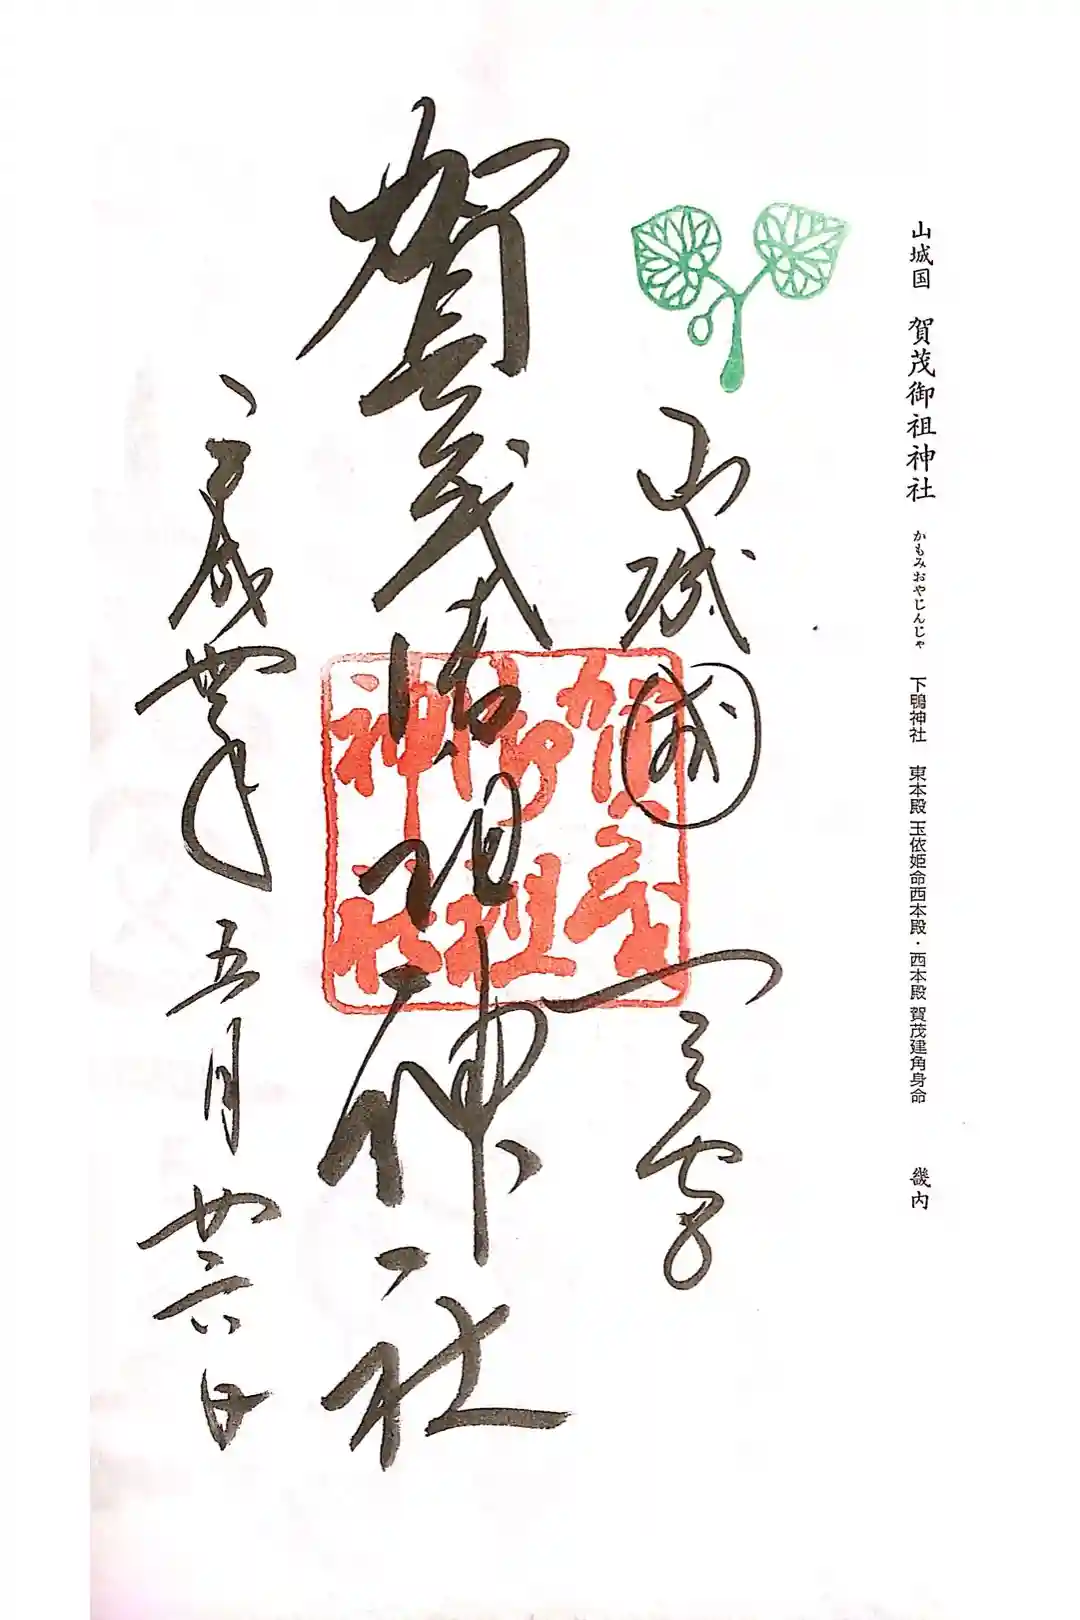 山城国 賀茂御祖神社 かもみおやじんじゃ 下鴨神社 東本殿 玉依姫命西本殿・西本殿 賀茂建角身命 畿内
山城國 一之宮
賀茂御祖神社
賀茂御祖神社
平成廿四年五月廿六日